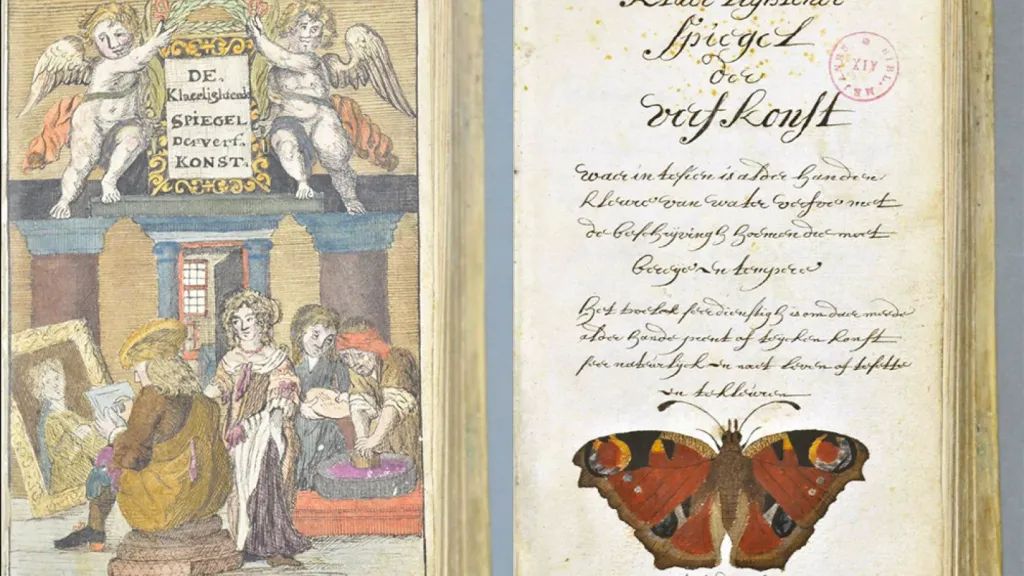 DE.
Klaerlightende
SPIEGEL
Der verf.
KONST.
Klaer Lightende
Spiegel
der
verfkonst
waer in tesien is alder handen
kleuren van water verfve met
de beschrijvingh hoemen die moet
bereyen en tempere
Het welck seer dienstigh is om daer meede
alder hande prent of teycken konst
seer natuerlyck en naet leven af tesette
en te kleuren
BIBL. MEJANES
AIX